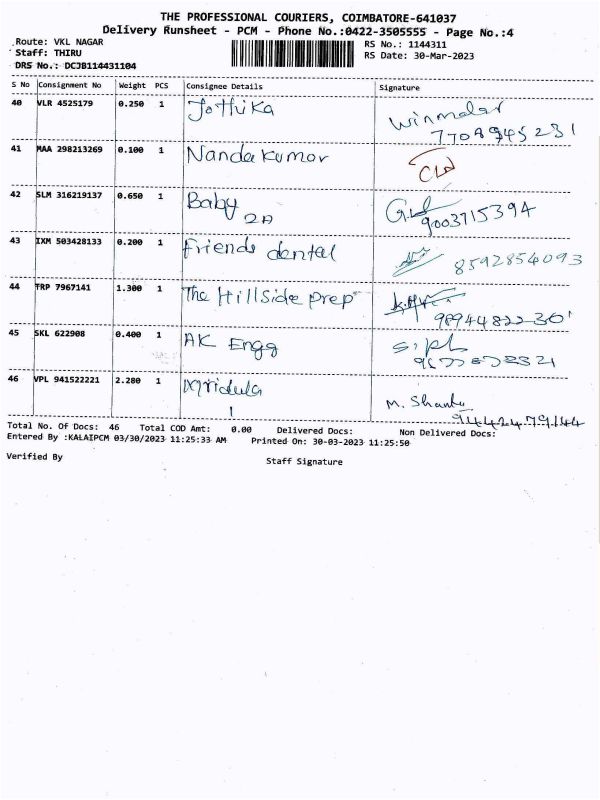 THE PROFESSIONAL COURIERS, COIMBATORE-641037
Delivery Runsheet - PCM - Phone No.:0422-3505555 - Page No.:4
Route: VKL NAGAR RS No.: 1144311
Staff: THIRU RS Date: 30-Mar-2023
DRS No.: DCJB114431104
S No Consignment No Weight PCS Consignee Details Signature
40 VLR 4525179 0.250 1 Jothika
41 MAA 298213269 0.100 1 Nanda kumar
42 SLM 316219137 0.650 1 Baby
2A 9003715394
43 IXM 503428133 0.200 1 Friends dental 8592854093
44 TRP 7967141 1.300 1 The Hillside prep
45 SKL 622908 0.400 1 AK Engg
46 VPL 941522221 2.280 1 Mridula M.
Total No. Of Docs: 46 Total COD Amt: 0.00 Delivered Docs: Non Delivered Docs:
Entered By :KALAIPCM 03/30/2023 11:25:33 AM Printed On: 30-03-2023 11:25:50
Verified By Staff Signature